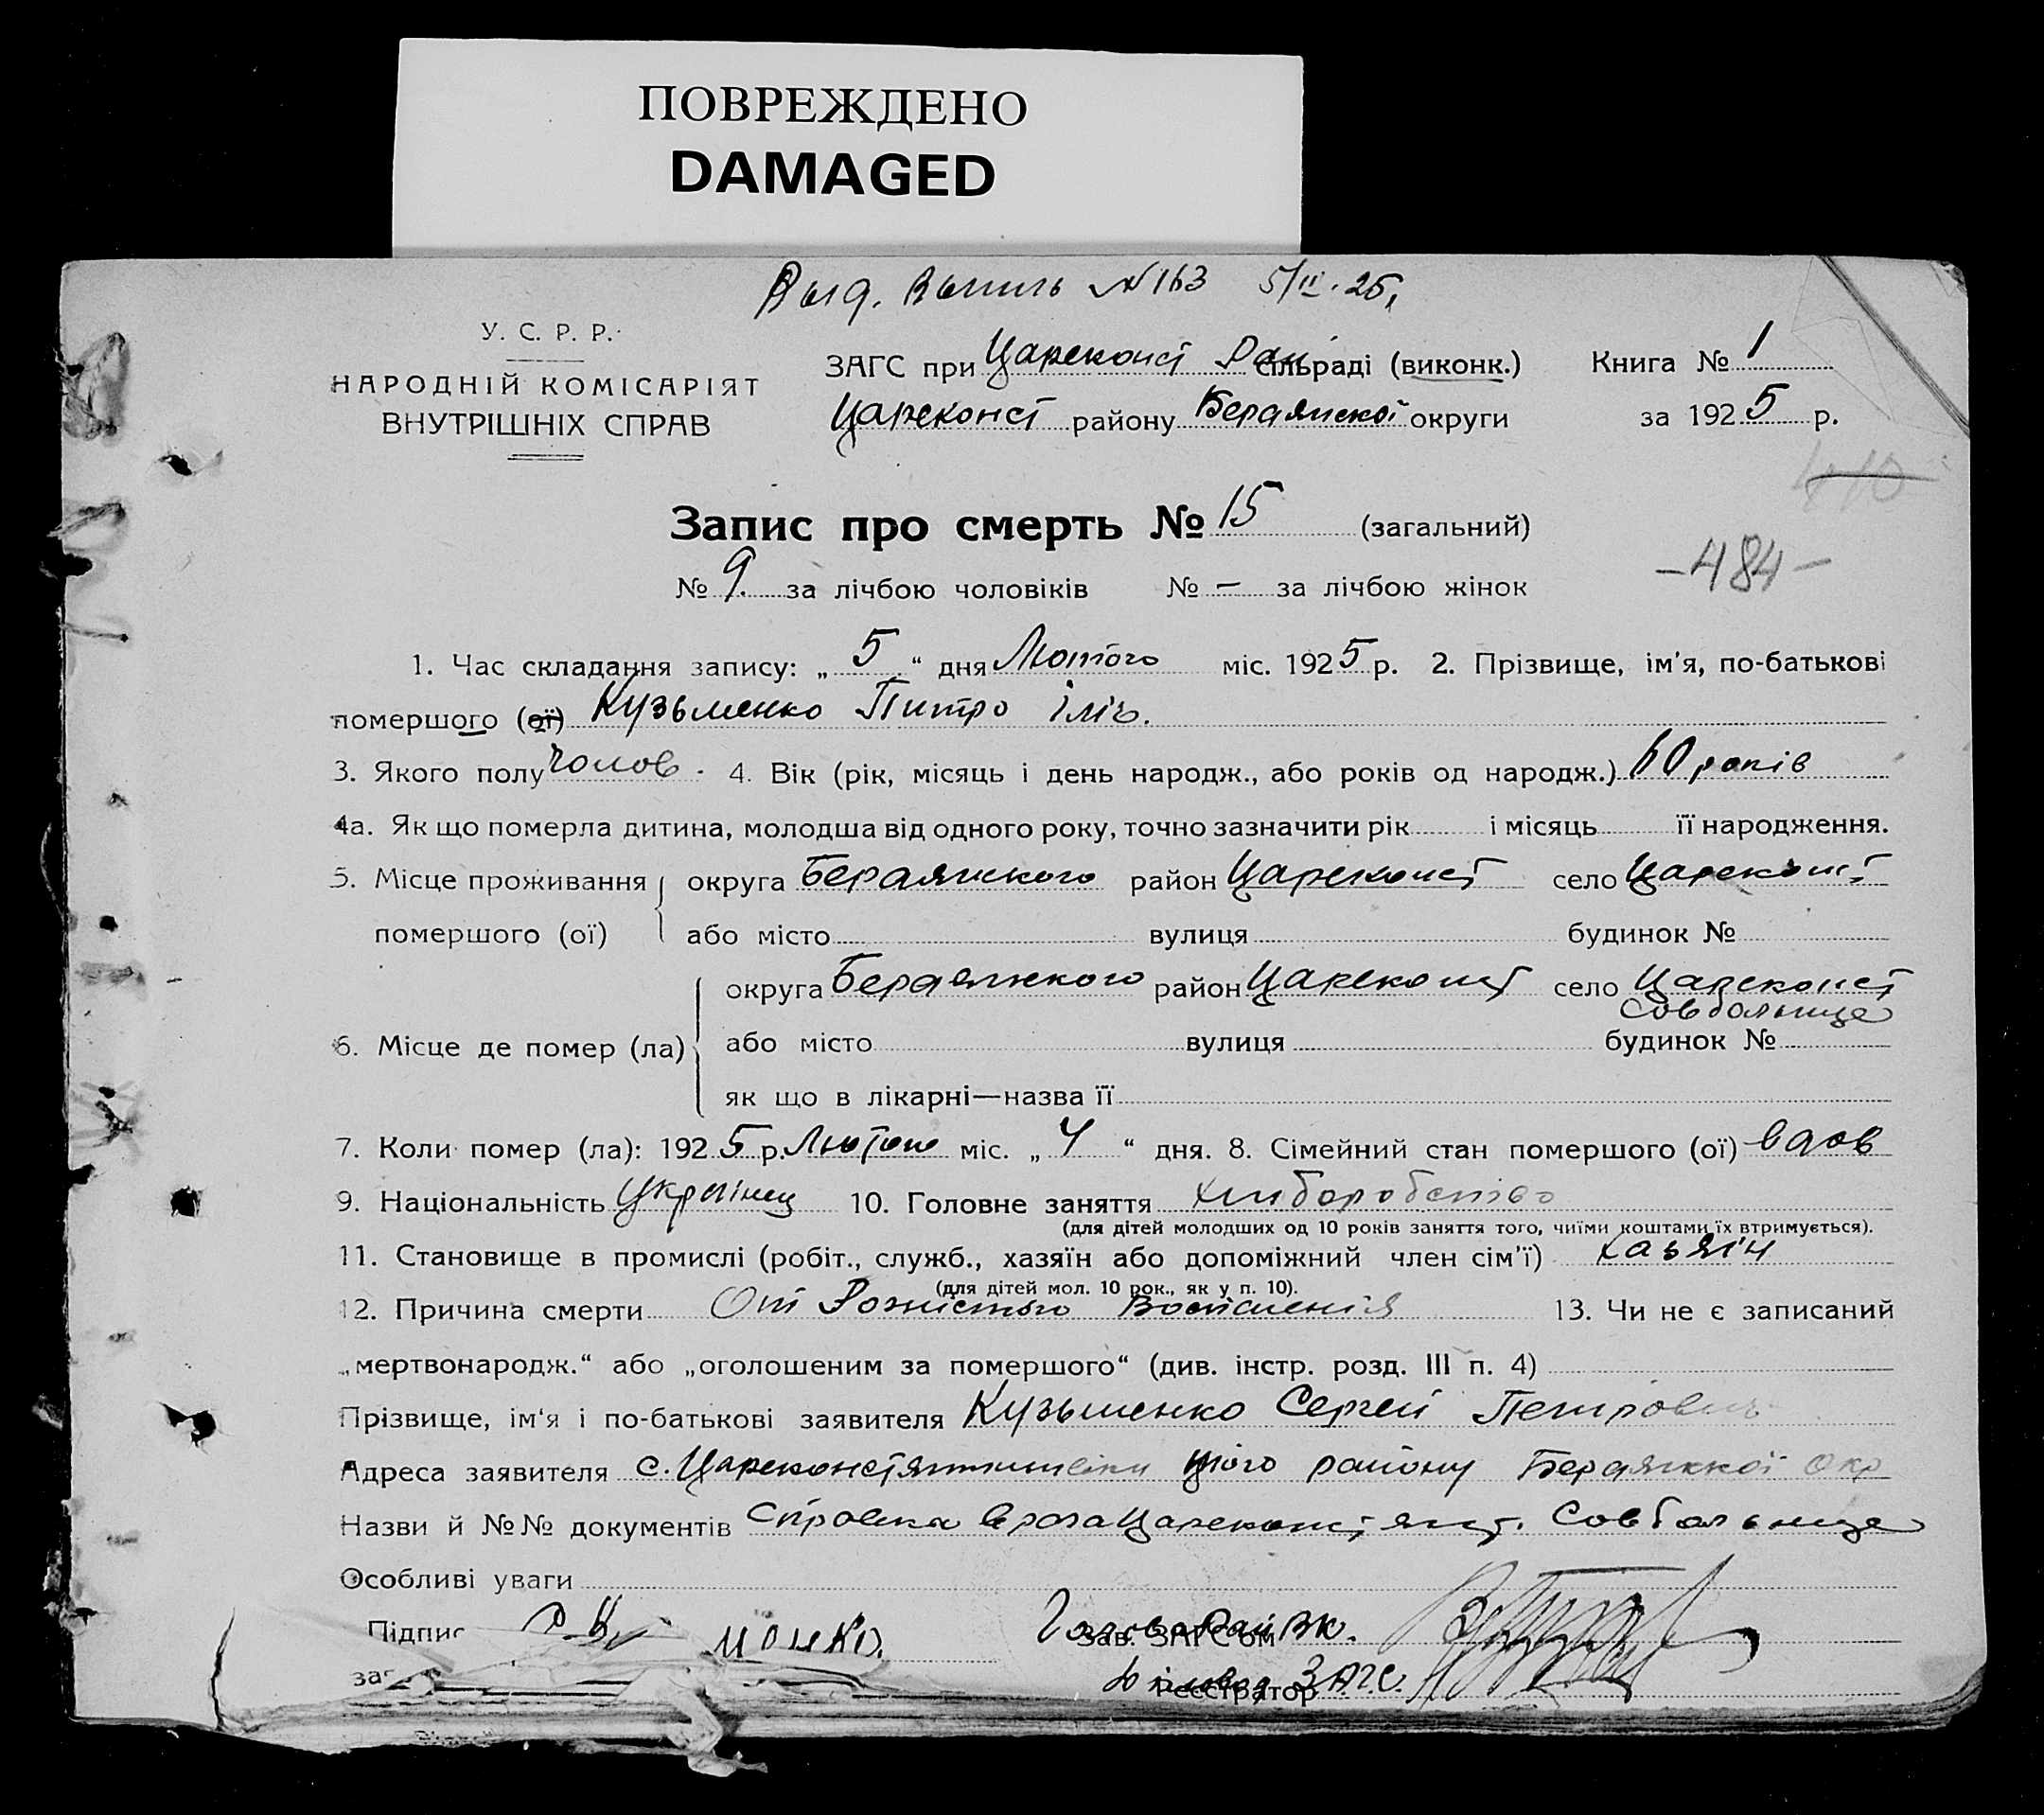 ПОВРЕЖДЕНО
DAMAGED
Выд. Выпись №163 5/II.25,
У. С. Р. Р.
НАРОДНІЙ КОМІСАРІЯТ
ВНУТРІШНІХ СПРАВ
ЗАГС при Цареконст Рай сільраді (виконк.) Книга № 1
Цареконст району Бердянской округи за 1925 р.
410
Запис про смерть № 15 (загальний)
№ 9. за лічбою чоловіків № — за лічбою жінок
—484—
1. Час складання запису: „ 5 “ дня Лютого міс. 1925 р. 2. Прізвище, ім'я, по-батькові
помершого (ої) Кузьменко Питро Іліч.
3. Якого полу Чолов. 4. Вік (рік, місяць і день народж., або років од народж.) 60 років
4а. Як що померла дитина, молодша від одного року, точно зазначити рік і місяць її народження.
5. Місце проживання округа Бердянского район Цареконст село Цареконст
помершого (ої) або місто вулиця будинок №
округа Бердянского район Цареконст село Цареконст
Совбольнице
6. Місце де помер (ла) або місто вулиця будинок №
як що в лікарні—назва її
7. Коли помер (ла): 1925 р. Лютого міс. „ 4 “ дня. 8. Сімейний стан помершого (ої) вдов
9. Національність Українец 10. Головне заняття хлиборобство
(для дітей молодших од 10 років заняття того, чиїми коштами їх втримується).
11. Становище в промислі (робіт., служб., хазяїн або допоміжний член сім'ї) хазяїн
(для дітей мол. 10 рок., як у п. 10).
12. Причина смерти От Рожистого Воспаления 13. Чи не є записаний
„мертвонародж.“ або „оголошеним за помершого“ (див. інстр. розд. III п. 4)
Прізвище, ім'я і по-батькові заявителя Кузьменко Сергей Петрович
Адреса заявителя с. Цареконстянтинівки цього району Бердянской Окр
Назви й №№ документів Справка врача Цареконстянт. Совбольнице
Особливі уваги
Підпис менко. Голова Райвк.
Зав. ЗАГС'ом
Діловод ЗАГС.
Реєстратор